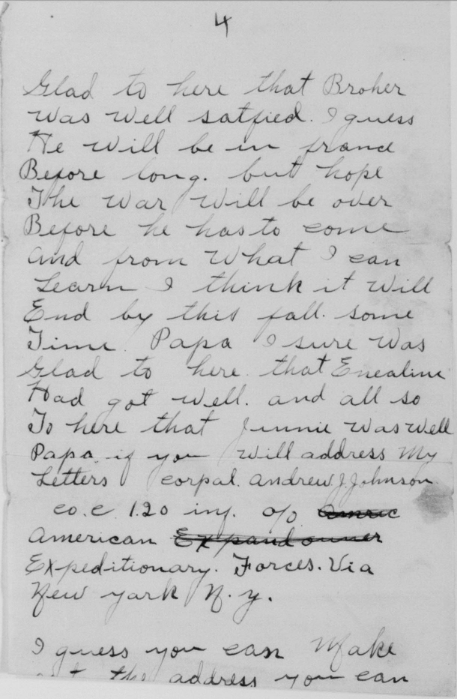 4
Glad to here that Broher
Was Well satfied. I guess
He will be in france
Before long. but hope
The War Will be over
Before he has to come
and from What I can
Learn I think it Will
End by this fall. some
Time. Papa I sure Was
Glad to here. that Enealine
Had got well. and all so
To here that Jinnie Was Well
Papa. if you will address My
Letters corpal. Andrew J Johnson
co. c 120 inf. o/o Amric
American
Expeditionary. Forces. Via
New york N. y.
I guess you can Make
out the address you can